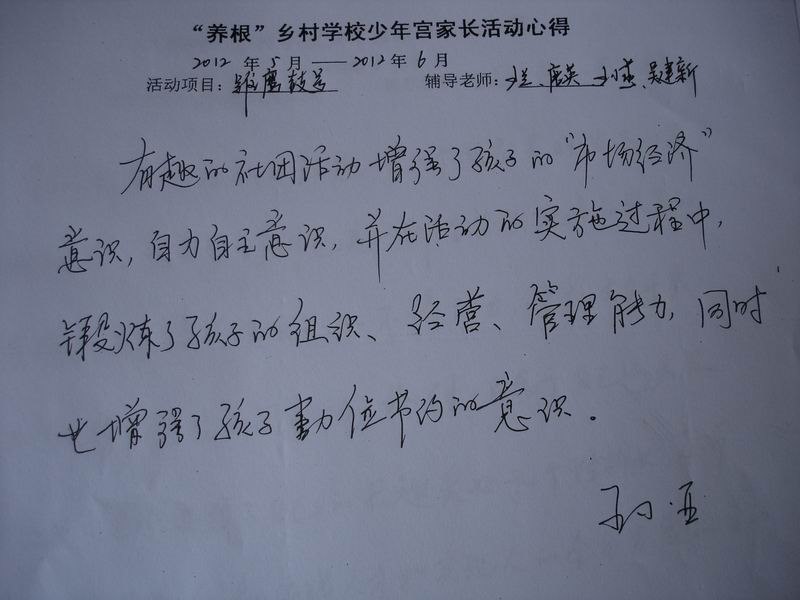 “养根”乡村学校少年宫家长活动心得
2012 年 5 月 —— 2012 年 6 月
活动项目： 辅导老师： 吴建新
有趣的社团活动增强了孩子的“市场经济”
意识，自力自主意识，并在活动的实施过程中，
锻炼了孩子的组织、经营、管理能力，同时
也增强了孩子勤俭节约的意识。